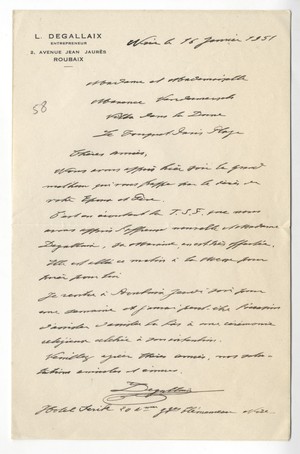 L. DEGALLAIX
ENTREPRENEUR
2, AVENUE JEAN JAURÈS
ROUBAIX
Nice le 16 Janvier 1951
58
Madame et Mademoiselle
Maxence Van der Meersch
Villa dans la Dune
Le Touquet Paris Plage
Chères amies,
Nous avons appris hier soir le grand
malheur qui vous frappe par le décès de
votre Epoux et Père.
C'est en écoutant la T.S.F. que nous
avons appris l'affreuse nouvelle et Madame
Degallaix, en est très affectée.
Elle est allée ce matin à la Messe pour
prier pour lui
Je rentre à Roubaix jeudi soir pour
une semaine et j'aurai peut être l'occasion
d'assister là bas à une cérémonie
religieuse célébrée à son intention.
Veuillez agréer chères amies, nos salu-
tations amicales et émues.
Degallaix
Hotel 20 Clémenceau Nice